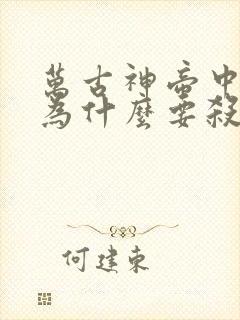 萬古神帝中
為什麼要殺
何建東